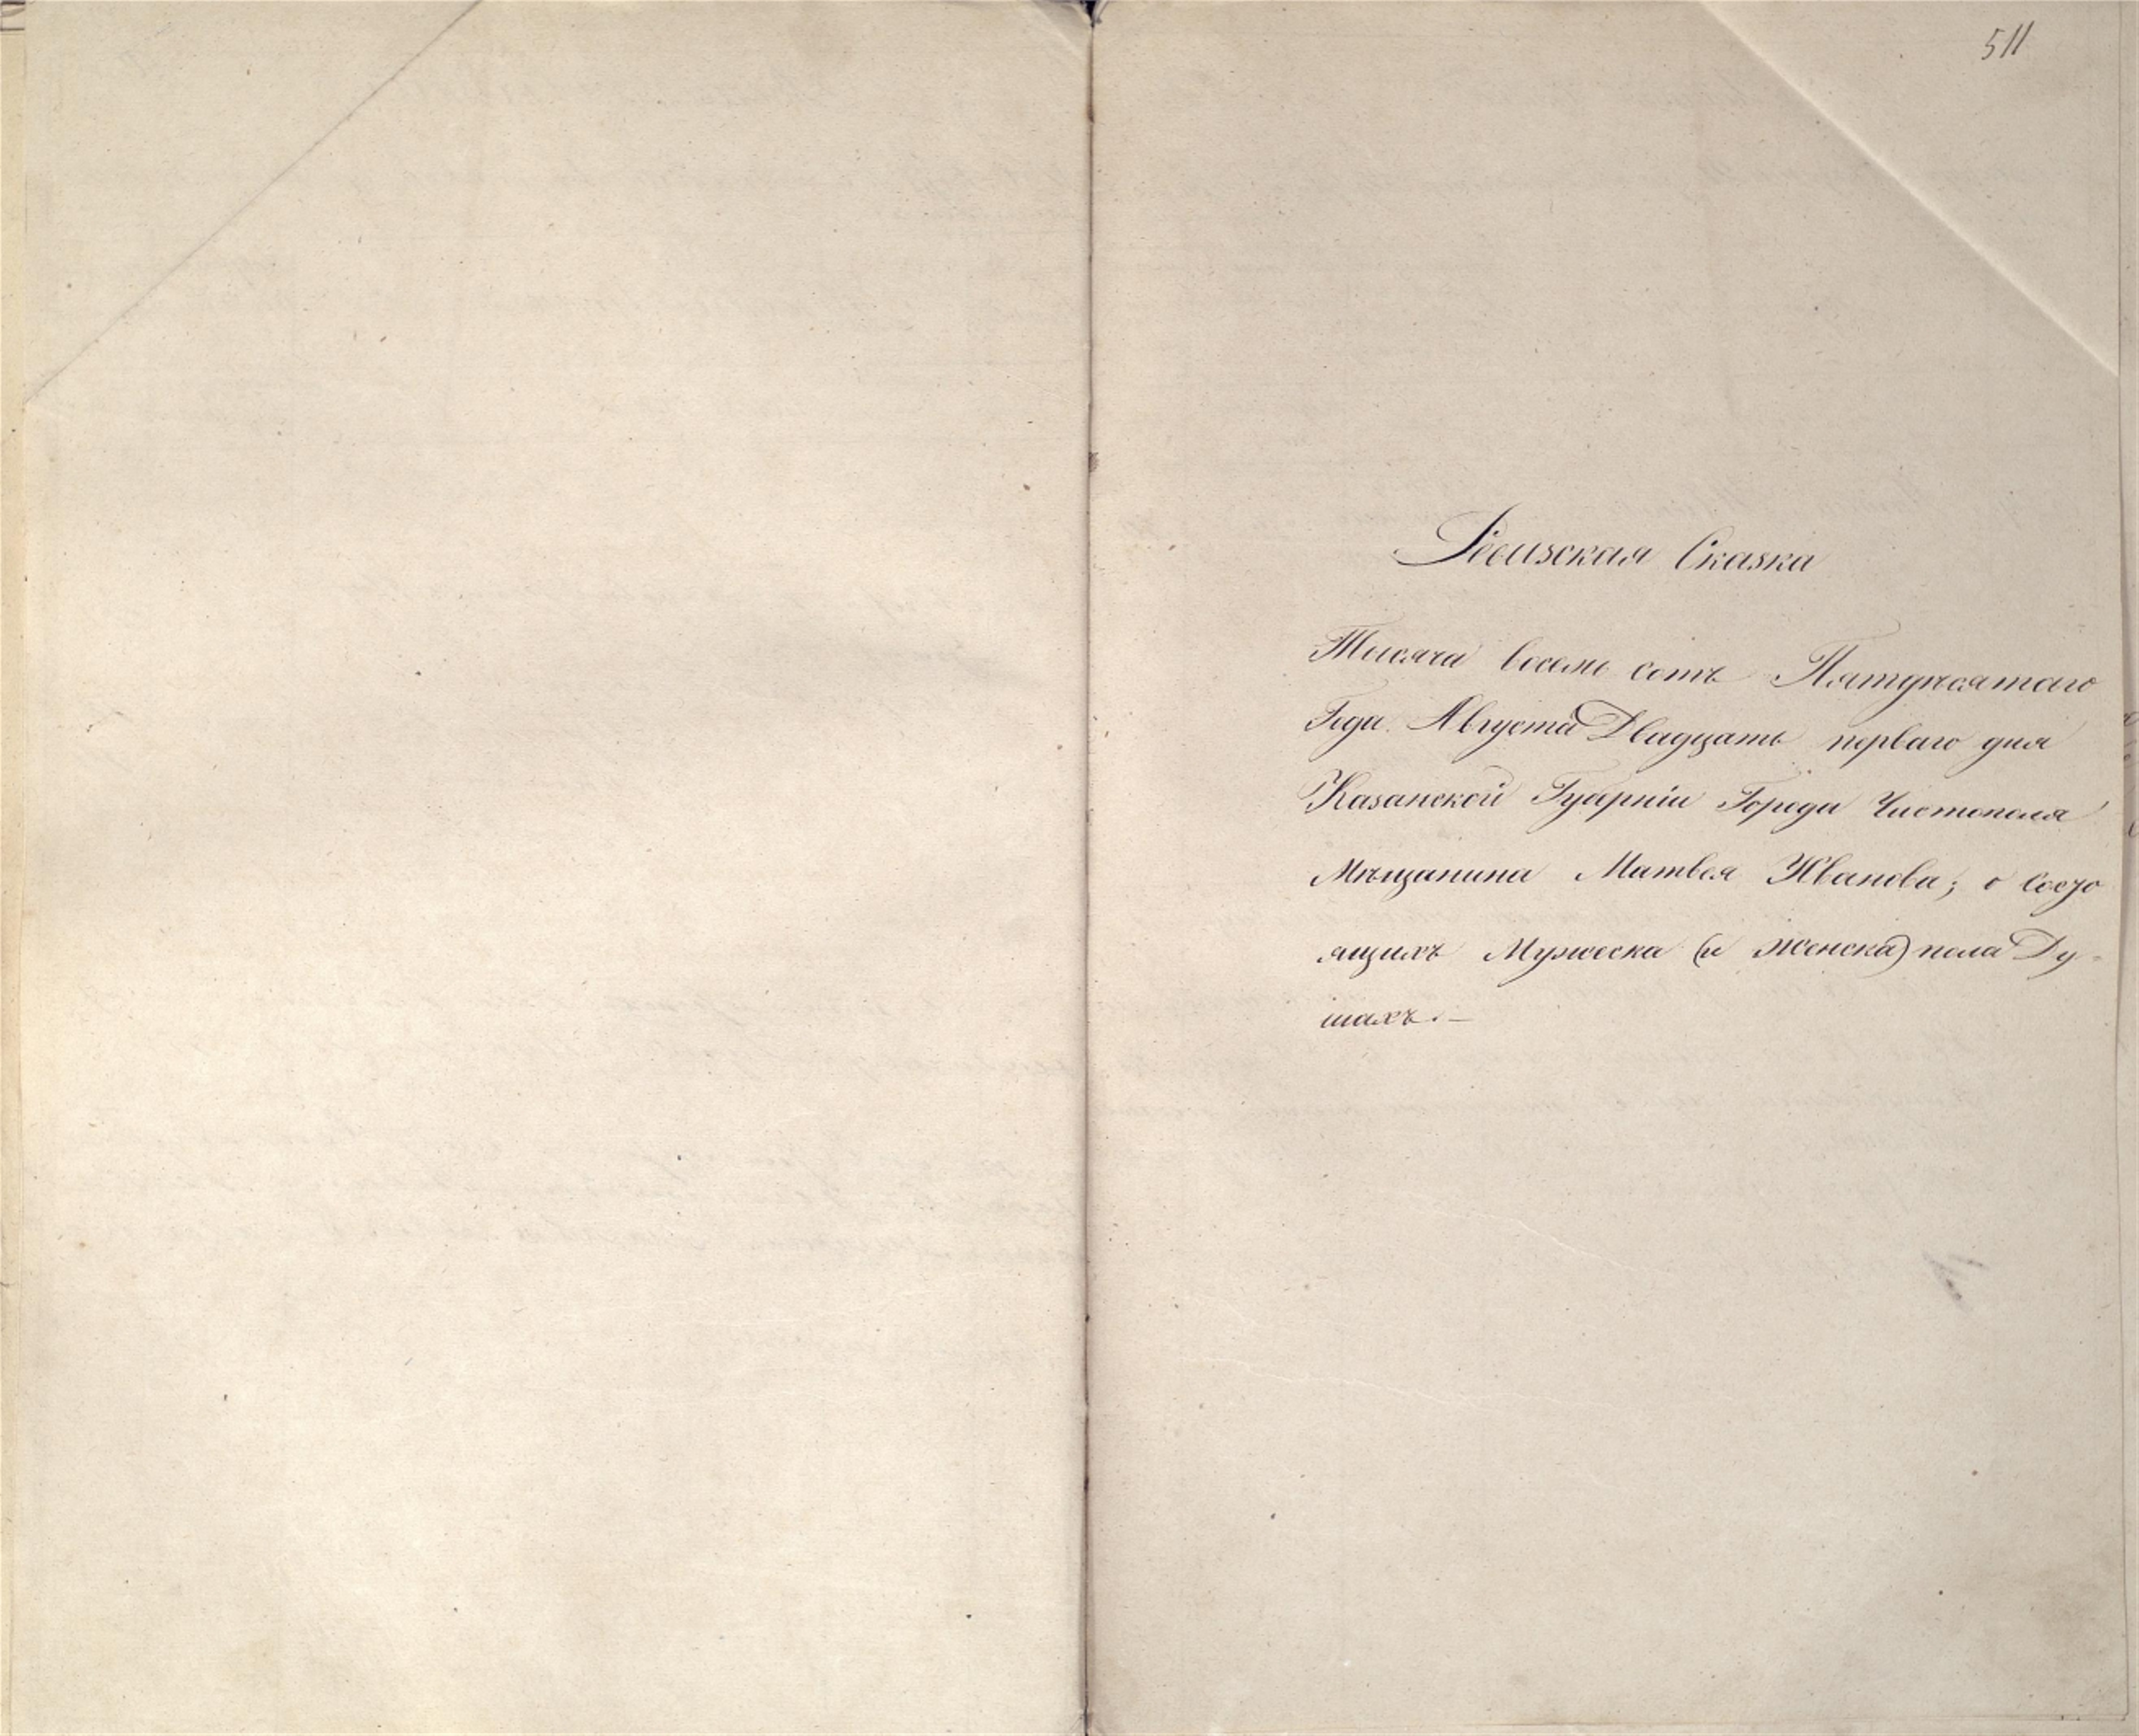 511
Ревизская Сказка
Тысяча восемь сотъ Пятидесятаго
Года. Августа Двадцать перваго дня
Казанской Губерніи Города Чистополя
Мѣщанина Матвея Иванова; о Состо
ящихъ Мужеска (и женска) пола Ду-
шахъ.—